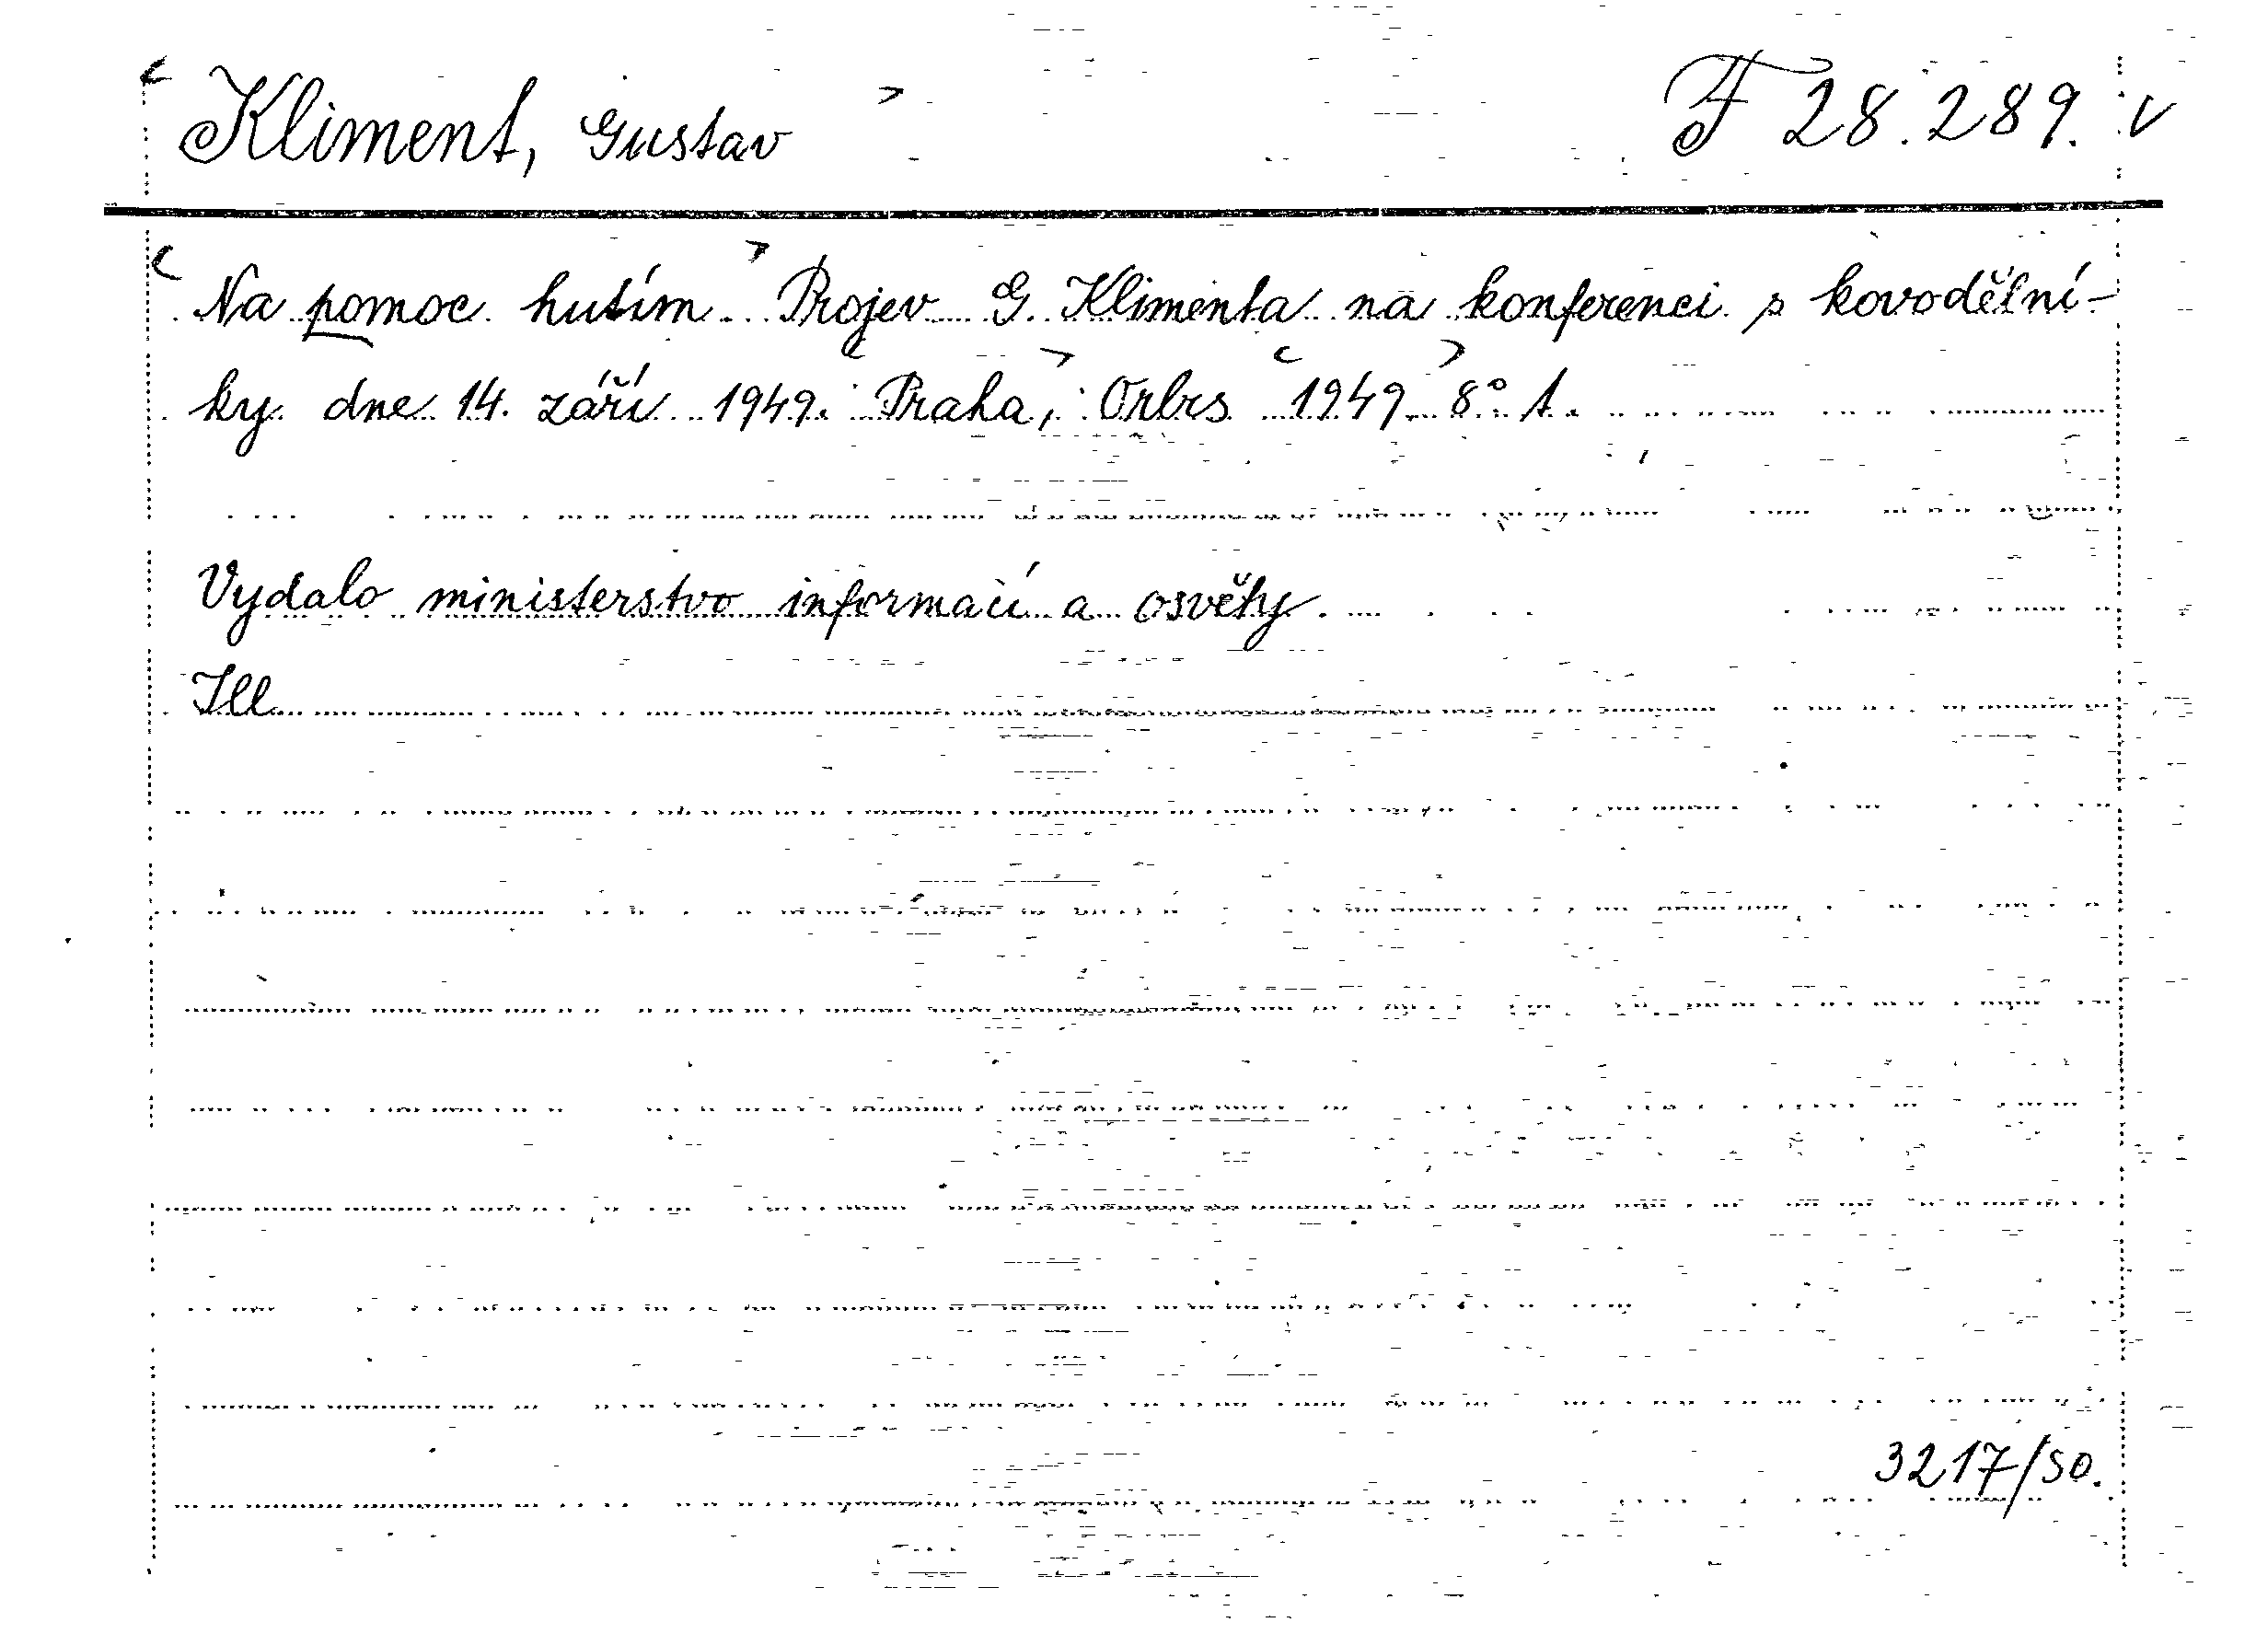 Kliment, Gustav F 28.289. v
Na pomoc hutím. Projev G. Klimenta na konferenci s kovodělní-
ky dne 14. září 1949. Praha, Orbis 1949. 8° 1.
Vydalo ministerstvo informací a osvěty.
Ill.
3217/50.